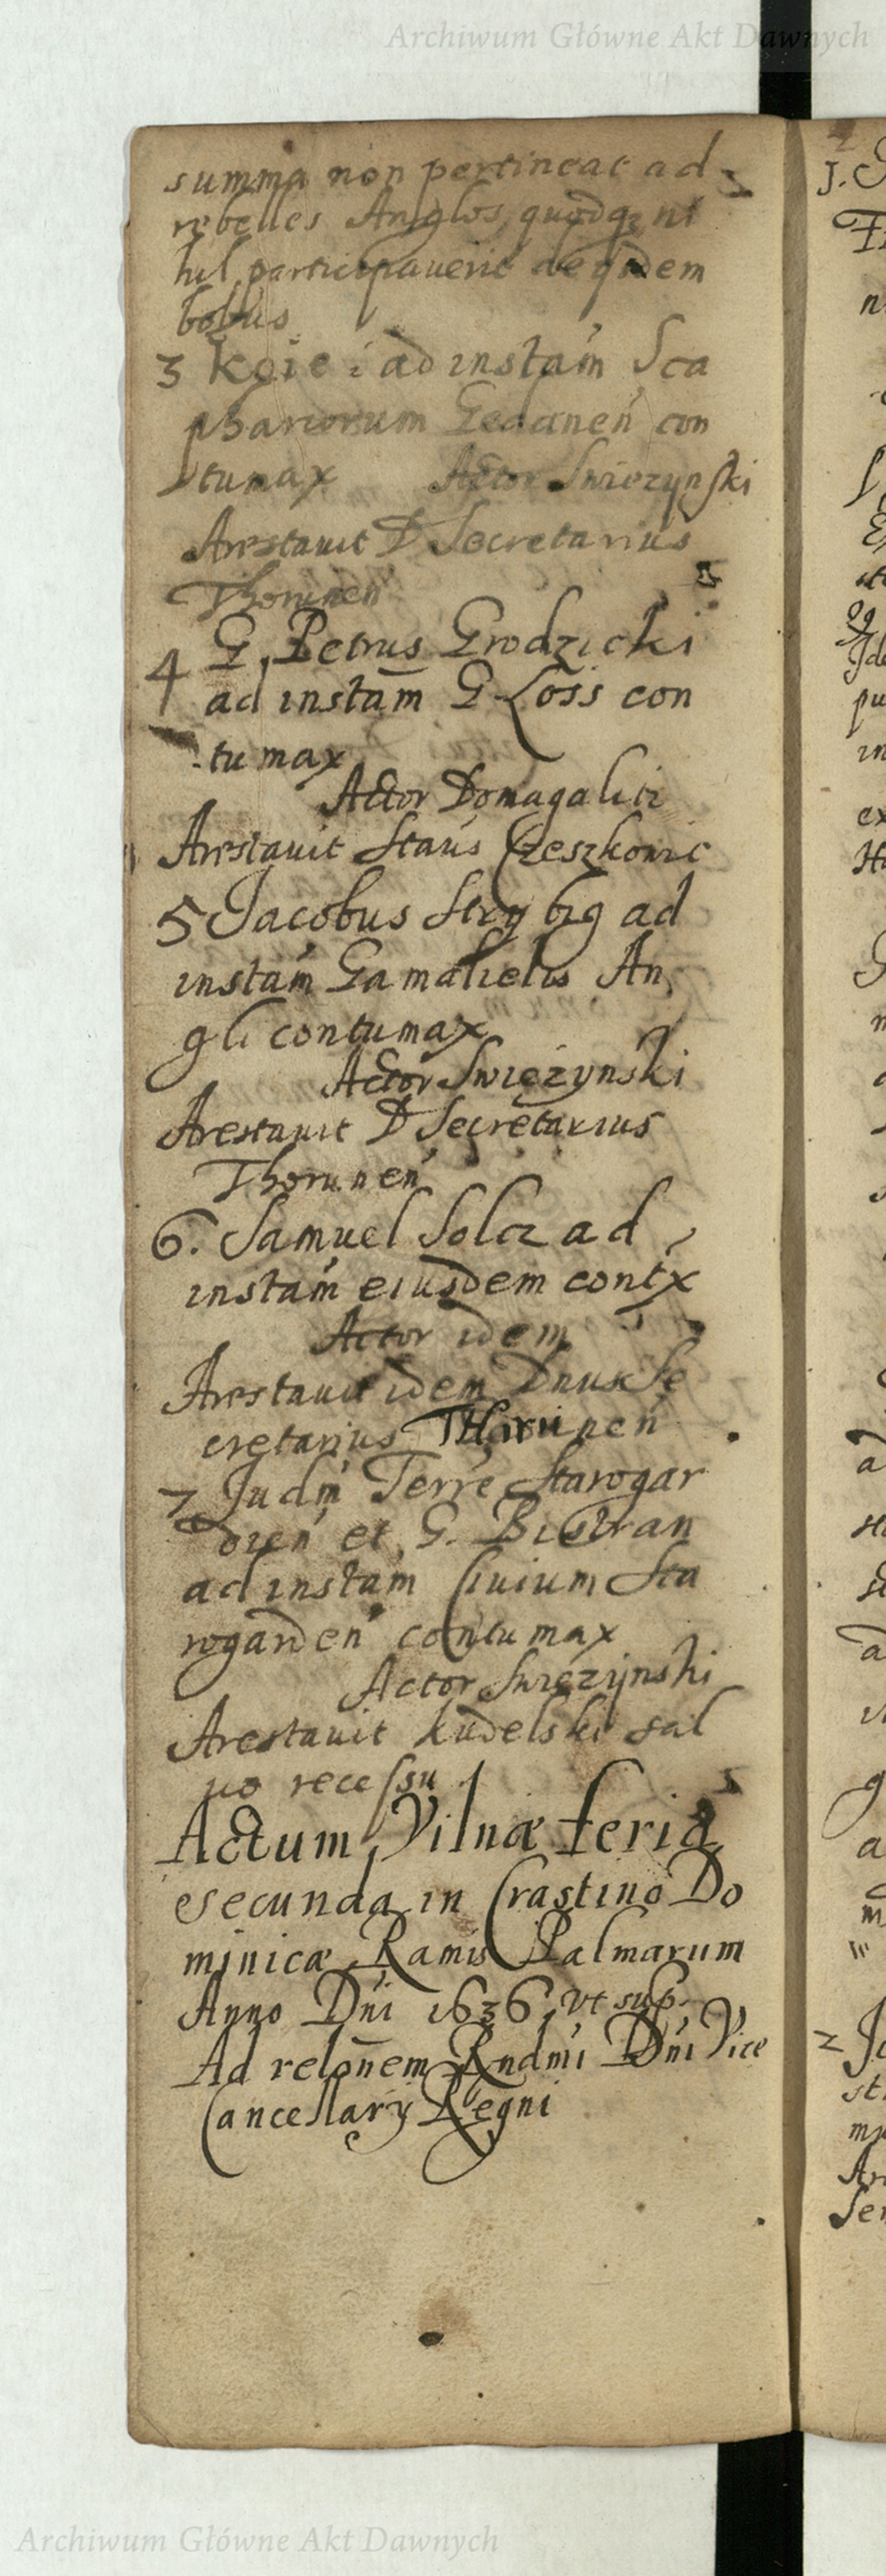 Archiwum Główne Akt Dawnych
summa non pertineat ad
rebelles Anglos, quodq; ni
hil participaverit de
bobus
3 ad instam̄ Sca
phariorum Gedanen̄ con
tumax Actor Swiezynski
Arestauit D Secretarius
Thorunen̄
4 G. Petrus Grodzicki
ad instam̄ G Loss con
tumax
Actor Domagalicz
Arestauit Staus Czeszkowic
5 Jacobus ad
instam̄ Gamalielis An
gli contumax
Actor Swiężynski
Arestauit D Secretarius
Thorunen̄
6. Samuel Solcz ad
instam̄ eiusdem contx
Actor idem
Arestauit idem Dnus Se
cretarius Thorunen̄
7 Judm̄ Terre Starogar
dien̄ et G. Bistran
ad instam̄ Ciuium Sta
rogarden̄ contumax
Actor Swiezijnski
Arestauit Kudelski sal
uo recessu
Actum Vilnæ feria
secunda in Crastino Do
minicæ Ramis Palmarum
Anno Dn̄i 1636 vt sup.
Ad relon̄em Rndmi Dn̄i Vice
Cancellarij Regni
Archiwum Główne Akt Dawnych